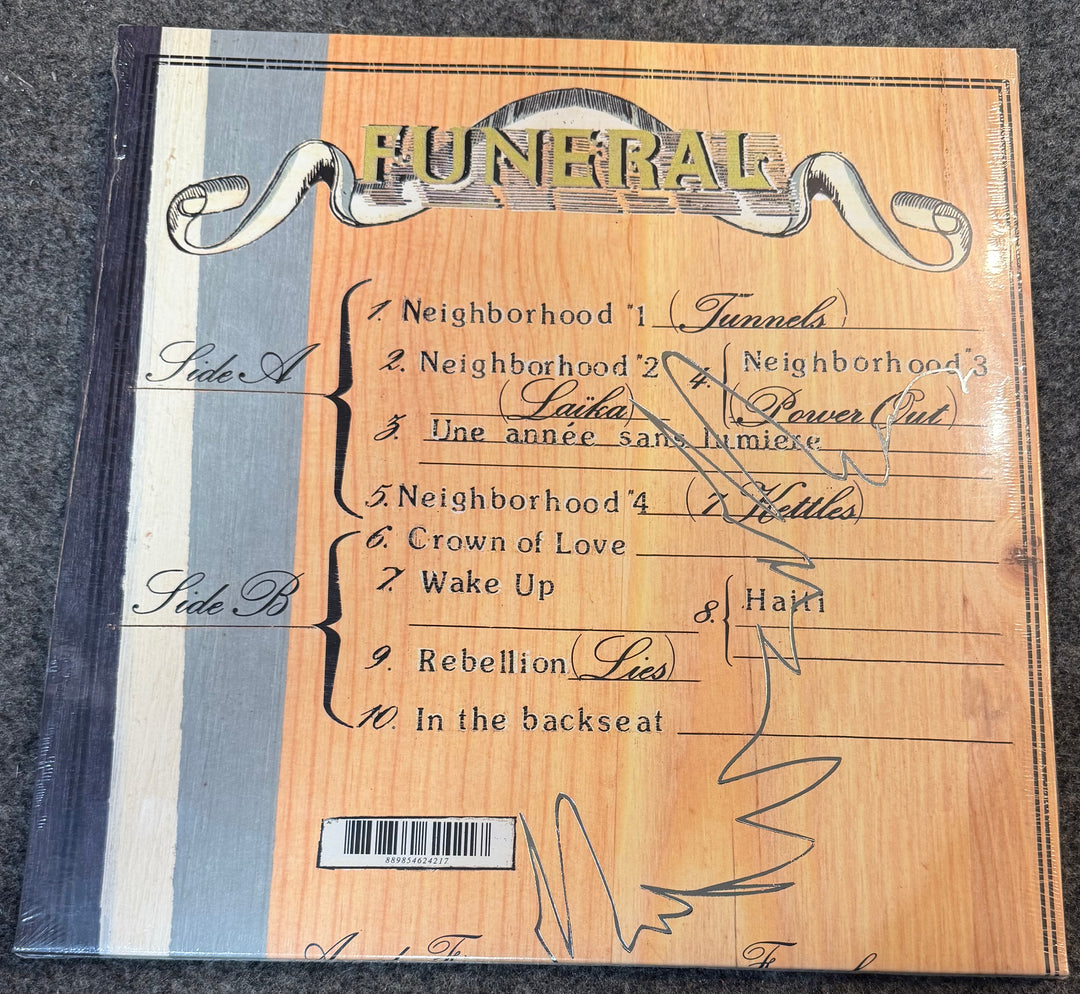 FUNERAL
Side A
1. Neighborhood #1 (Tunnels)
2. Neighborhood #2 (Laïka)
3. Une année sans lumiere
4. Neighborhood #3 (Power Out)
5. Neighborhood #4 (7 Kettles)
Side B
6. Crown of Love
7. Wake Up
8. Haiti
9. Rebellion (Lies)
10. In the backseat
889854624217